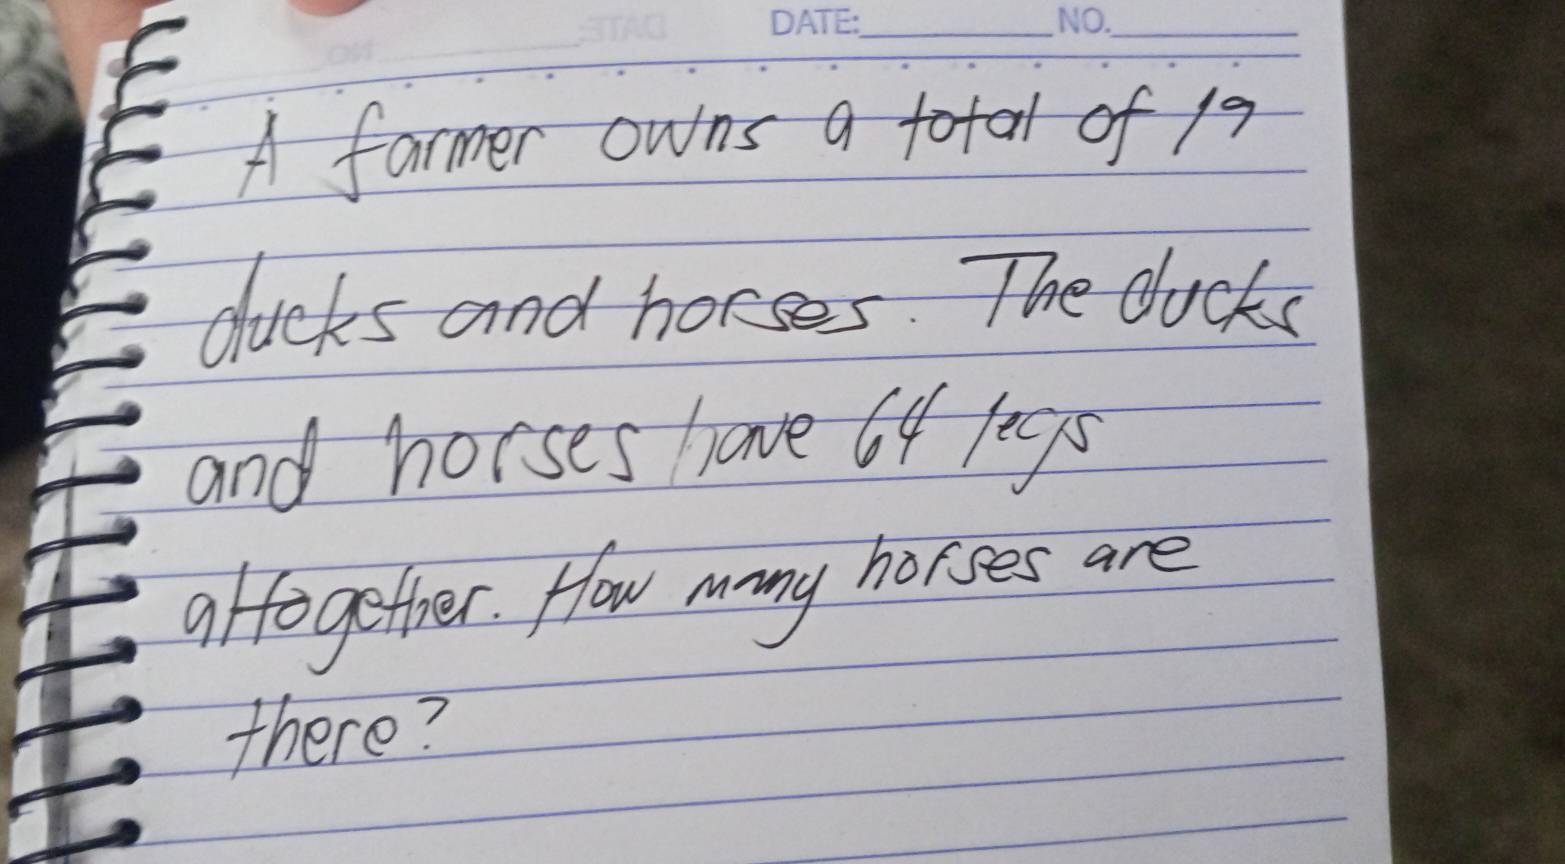 DATE: NO.
A farmer owns a total of 19
ducks and horses. The ducks
and horses have 64 legs
altogether. How many horses are
there?